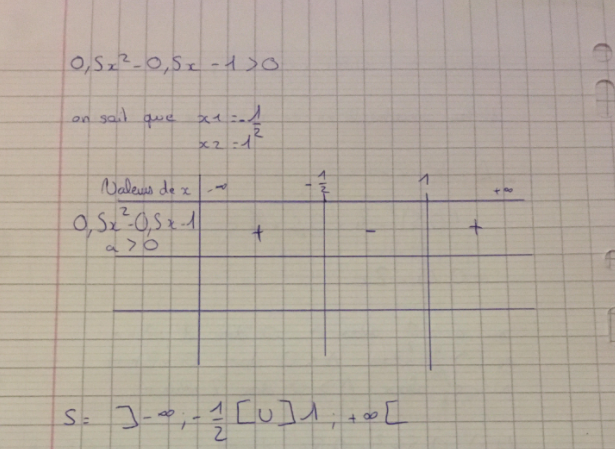 0,5x² - 0,5x - 1 > 0
on sait que x1 = -1/2
x2 = 1
Valeurs de x -∞ -1/2 1 +∞
0,5x² - 0,5x - 1 + - +
a > 0
S = ]-∞ ; -1/2 [ U ] 1 ; +∞ [